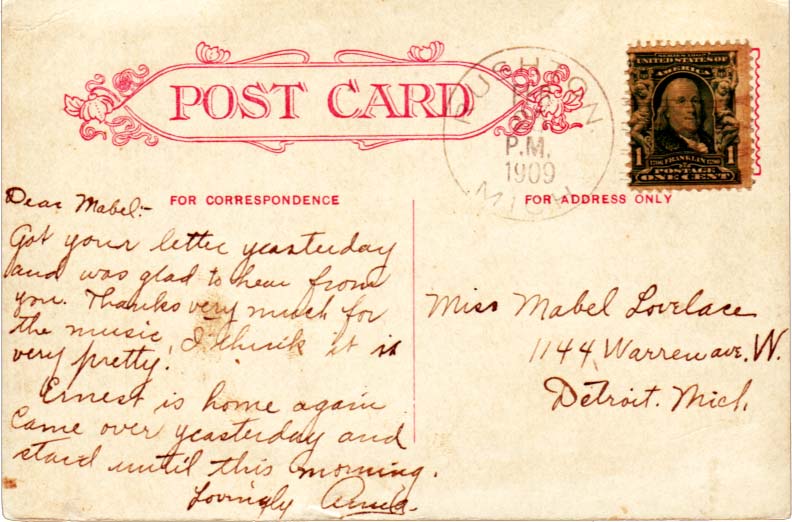 POST CARD
RUSHTON
P.M.
1909
MICH.
SERIES 1902
UNITED STATES OF
AMERICA
1 1706 FRANKLIN 1790 1
POSTAGE
ONE CENT
FOR CORRESPONDENCE
FOR ADDRESS ONLY
Dear Mabel:-
Got your letter yeasterday
and was glad to hear from
you. Thanks very much for
the music, I think it is
very pretty!
Ernest is home again
Came over yeasterday and
staid until this morning.
Lovingly Annie.
Miss Mabel Lovelace
1144 Warren ave. W.
Detroit. Mich.